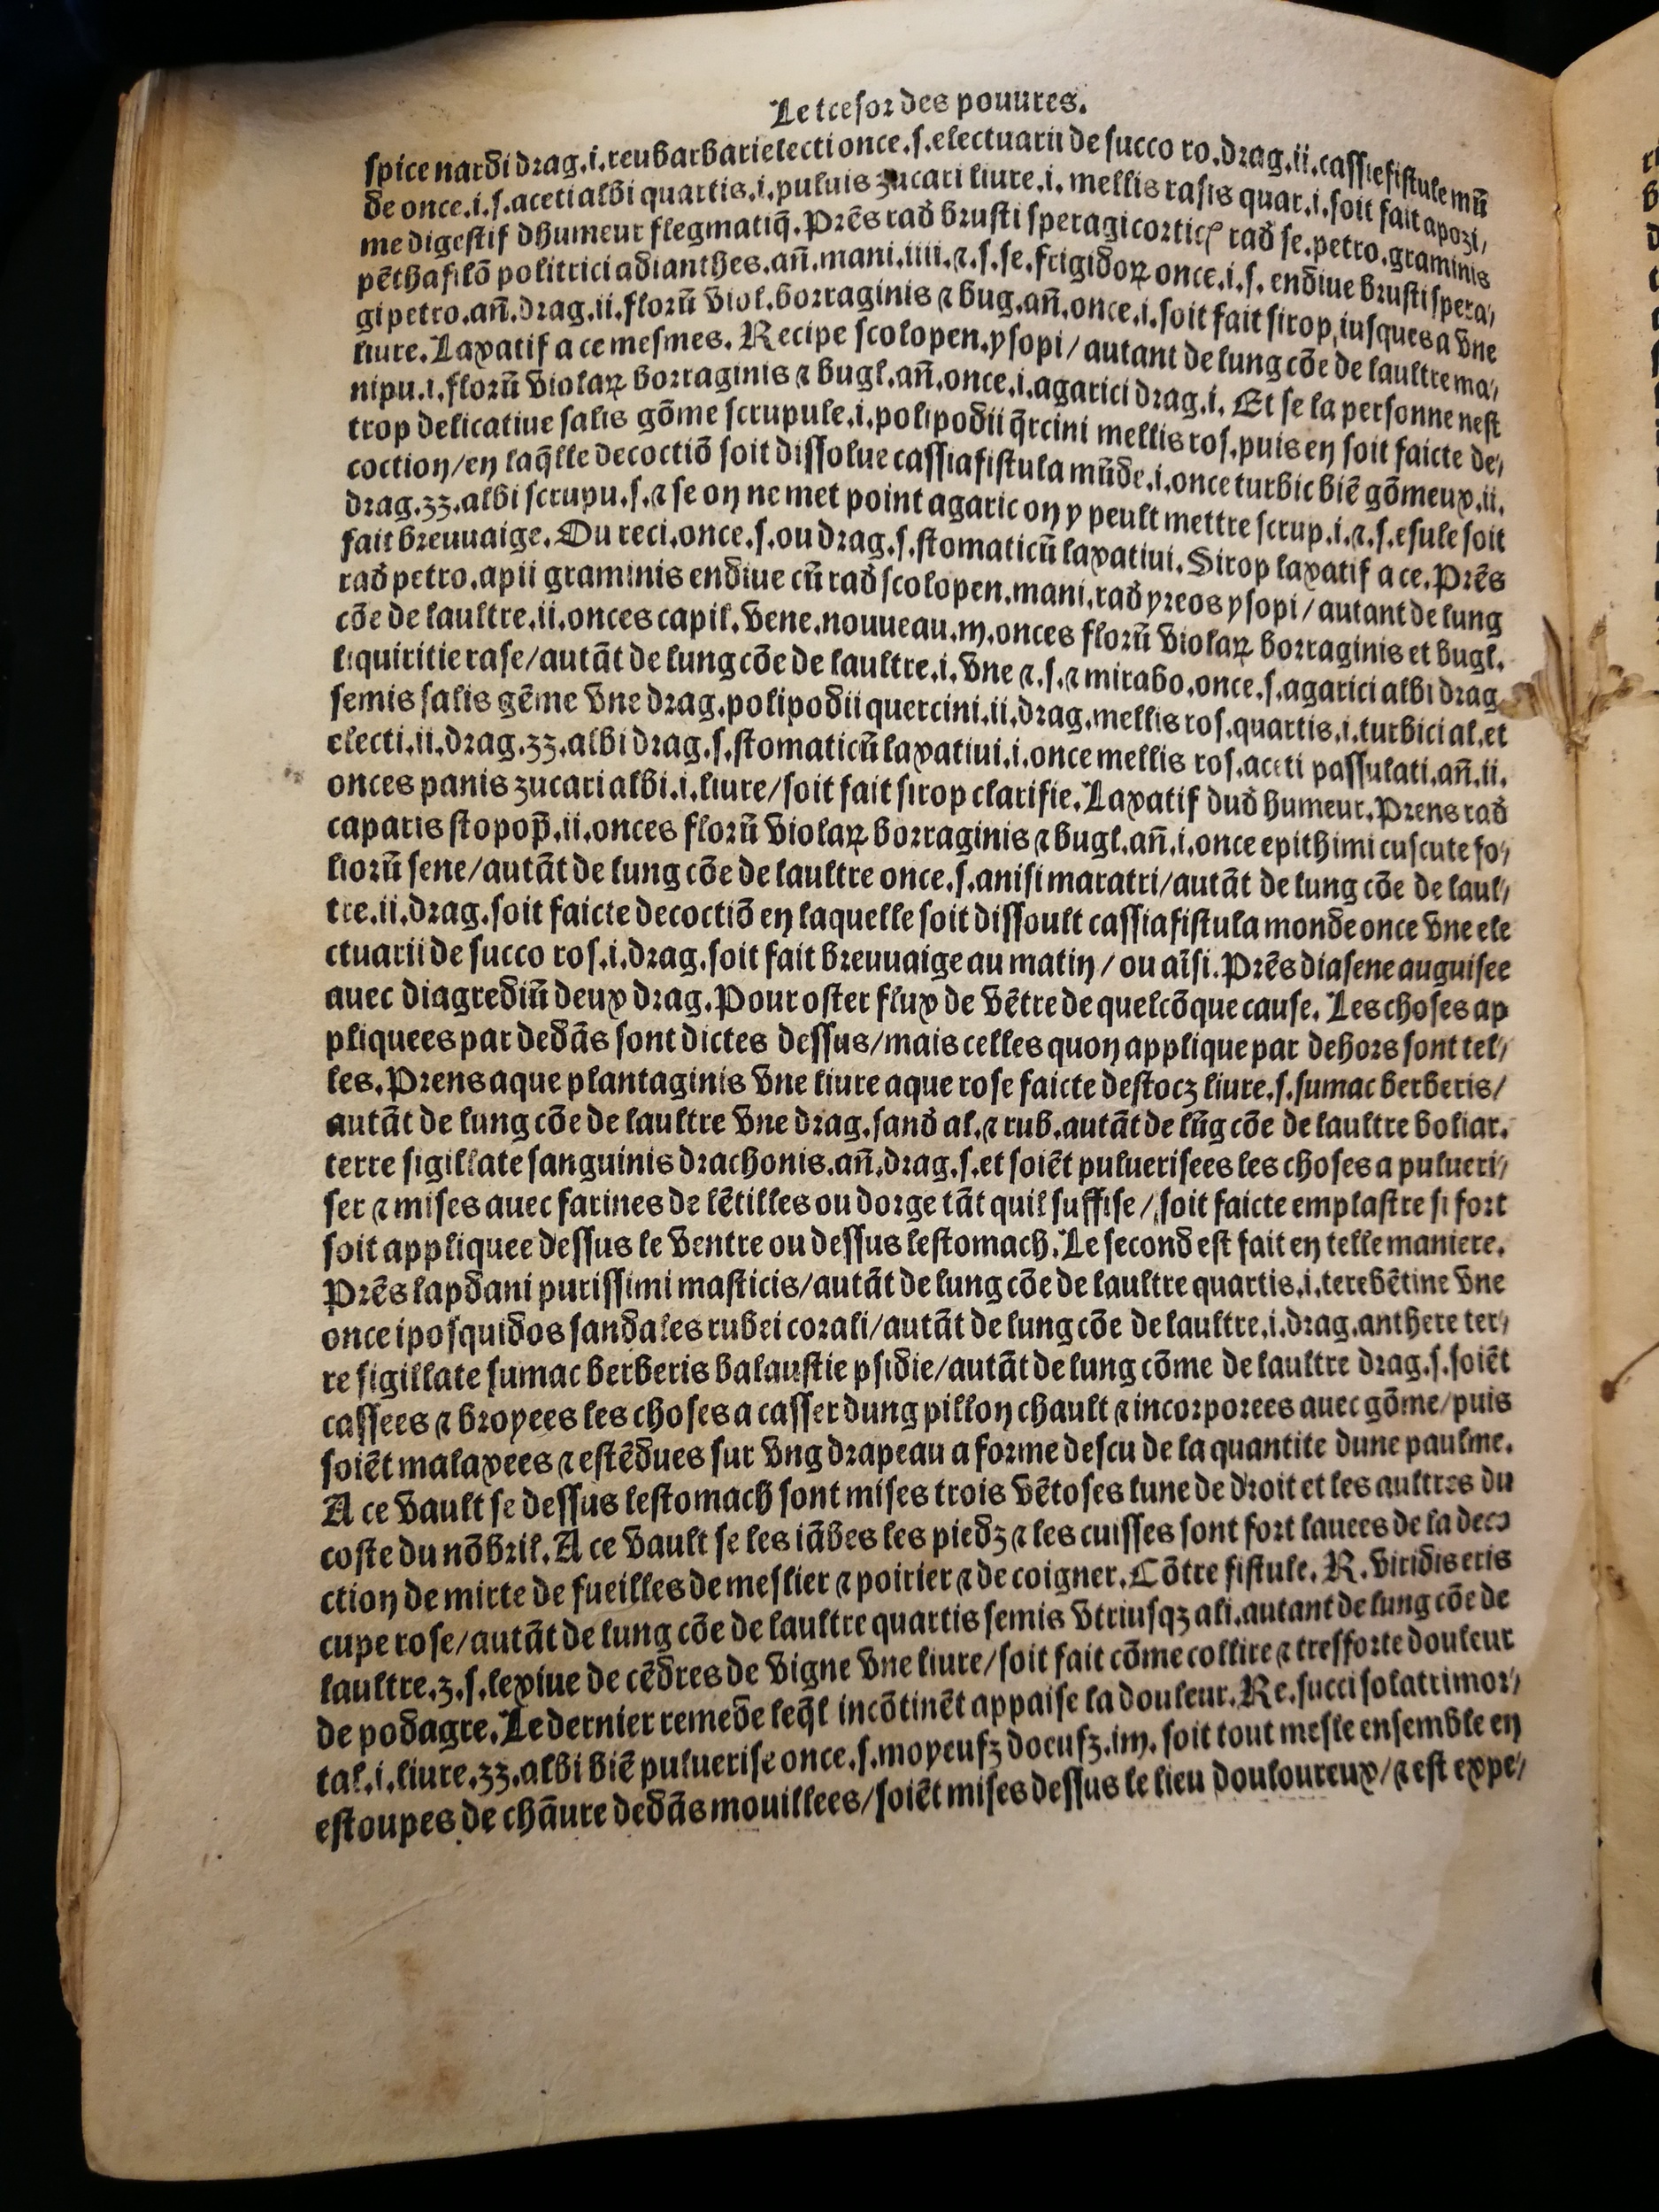 Le tcesor des pouures.
spice nardi drag.i.reubarbari electi once.s.electuarii de succo ro.drag.ii.cassiefistule mū
de once.i.s.aceti albi quartis.i.puluis zucari liure.i. mellis rasis quar.i.soit fait apozi/
me digestif dhumeur flegmatiq̄.Prēs rad brusti speragi corticꝭ rad se.petro.graminis
pēthafilō politrici adianthes.añ.mani.iiii.⁊.s.se.frigidoꝝ once.i.s. endiue brusti spera/
gi petro.añ.drag.ii.florū viol.borraginis ⁊ bug.añ.once.i.soit fait sirop,iusques a vne
liure.Laxatif a ce mesmes. Recipe scolopen.ysopi/autant de lung cōe de laultre ma/
nipu.i.florū violaꝝ borraginis ⁊ bugl.añ.once.i.agarici drag.i. Et se la personne nest
trop delicatiue salis gōme scrupule.i.polipodii q̄rcini mellis ros.puis en soit faicte de/
coction/en laq̄lle decoctiō soit dissolue cassiafistula mūde.i.once turbic biē gōmeux.ii.
drag.zz.albi scrupu.s.⁊ se on ne met point agaric on y peult mettre scrup.i.⁊.s.esule soit
fait breuuaige.Ou reci.once.s.ou drag.s.stomaticū laxatiui.Sirop laxatif a ce.Prēs
rad petro.apii graminis endiue cū rad scolopen.mani.rad yreos ysopi/autant de lung
cōe de laultre.ii.onces capil.vene.nouueau.iij.onces florū violaꝝ borraginis et bugl.
liquiritie rase/autāt de lung cōe de laultre.i.vne ⁊.s.⁊ mirabo.once.s.agarici albi drag
semis salis gēme vne drag.polipodii quercini.ii.drag.mellis ros.quartis.i.turbici al.et
electi.ii.drag.zz.albi drag.s.stomaticū laxatiui.i.once mellis ros.aceti passulati.añ.ii.
onces panis zucari albi.i.liure/soit fait sirop clarifie.Laxatif dud humeur.Prens rad
caparis stopop̄.ii.onces florū violaꝝ borraginis ⁊ bugl.añ.i.once epithimi cuscute fo/
liorū sene/autāt de lung cōe de laultre once.s.anisi maratri/autāt de lung cōe de laul/
tre.ii.drag.soit faicte decoctiō en laquelle soit dissoult cassiafistula monde once vne ele
ctuarii de succo ros.i.drag.soit fait breuuaige au matin/ou aīsi.Prēs diasene auguisee
auec diagrediū deux drag.Pour oster flux de vētre de quelcōque cause. Les choses ap
pliquees par dedās sont dictes dessus/mais celles quon applique par dehors sont tel/
les.Prens aque plantaginis vne liure aque rose faicte destocz liure.s.sumac berberis/
autāt de lung cōe de laultre vne drag.sand al.⁊ rub.autāt de lūg cōe de laultre boliar.
terre sigillate sanguinis drachonis.añ.drag.s.et soiēt puluerisees les choses a pulueri/
ser ⁊ mises auec farines de lētilles ou dorge tāt quil suffise/soit faicte emplastre si fort
soit appliquee dessus le ventre ou dessus lestomach.Le second est fait en telle maniere.
Prēs lapdani purissimi masticis/autāt de lung cōe de laultre quartis.i.terebētine vne
once iposquidos sandales rubei corali/autāt de lung cōe de laultre.i.drag.anthere ter/
re sigillate sumac berberis balaustie psidie/autāt de lung cōme de laultre drag.s.soiēt
cassees ⁊ broyees les choses a casser dung pillon chault ⁊ incorporees auec gōme/puis
soiēt malaxees ⁊ estēdues sur vng drapeau a forme descu de la quantite dune paulme.
A ce vault se dessus lestomach sont mises trois vētoses lune de droit et les aultres du
coste du nōbril.A ce vault se les iābes les piedz ⁊ les cuisses sont fort lauees de la deco
ction de mirte de fueilles de meslier ⁊ poirier ⁊ de coigner.Cōtre fistule. R. viridis eris
cupe rose/autāt de lung cōe de laultre quartis semis vtriusqz ali.autant de lung cōe de
laultre.z.s.lexiue de cēdres de vigne vne liure/soit fait cōme collire ⁊ tresforte douleur
de podagre.Le dernier remede leq̄l incōtinēt appaise la douleur.Re.succi solatri mor/
tal.i.liure.zz.albi biē puluerise once.s.moyeufz doeufz.iiij. soit tout mesle ensemble en
estoupes de chāure dedās mouillees/soiēt mises dessus le lieu douloureux/⁊ est expe/